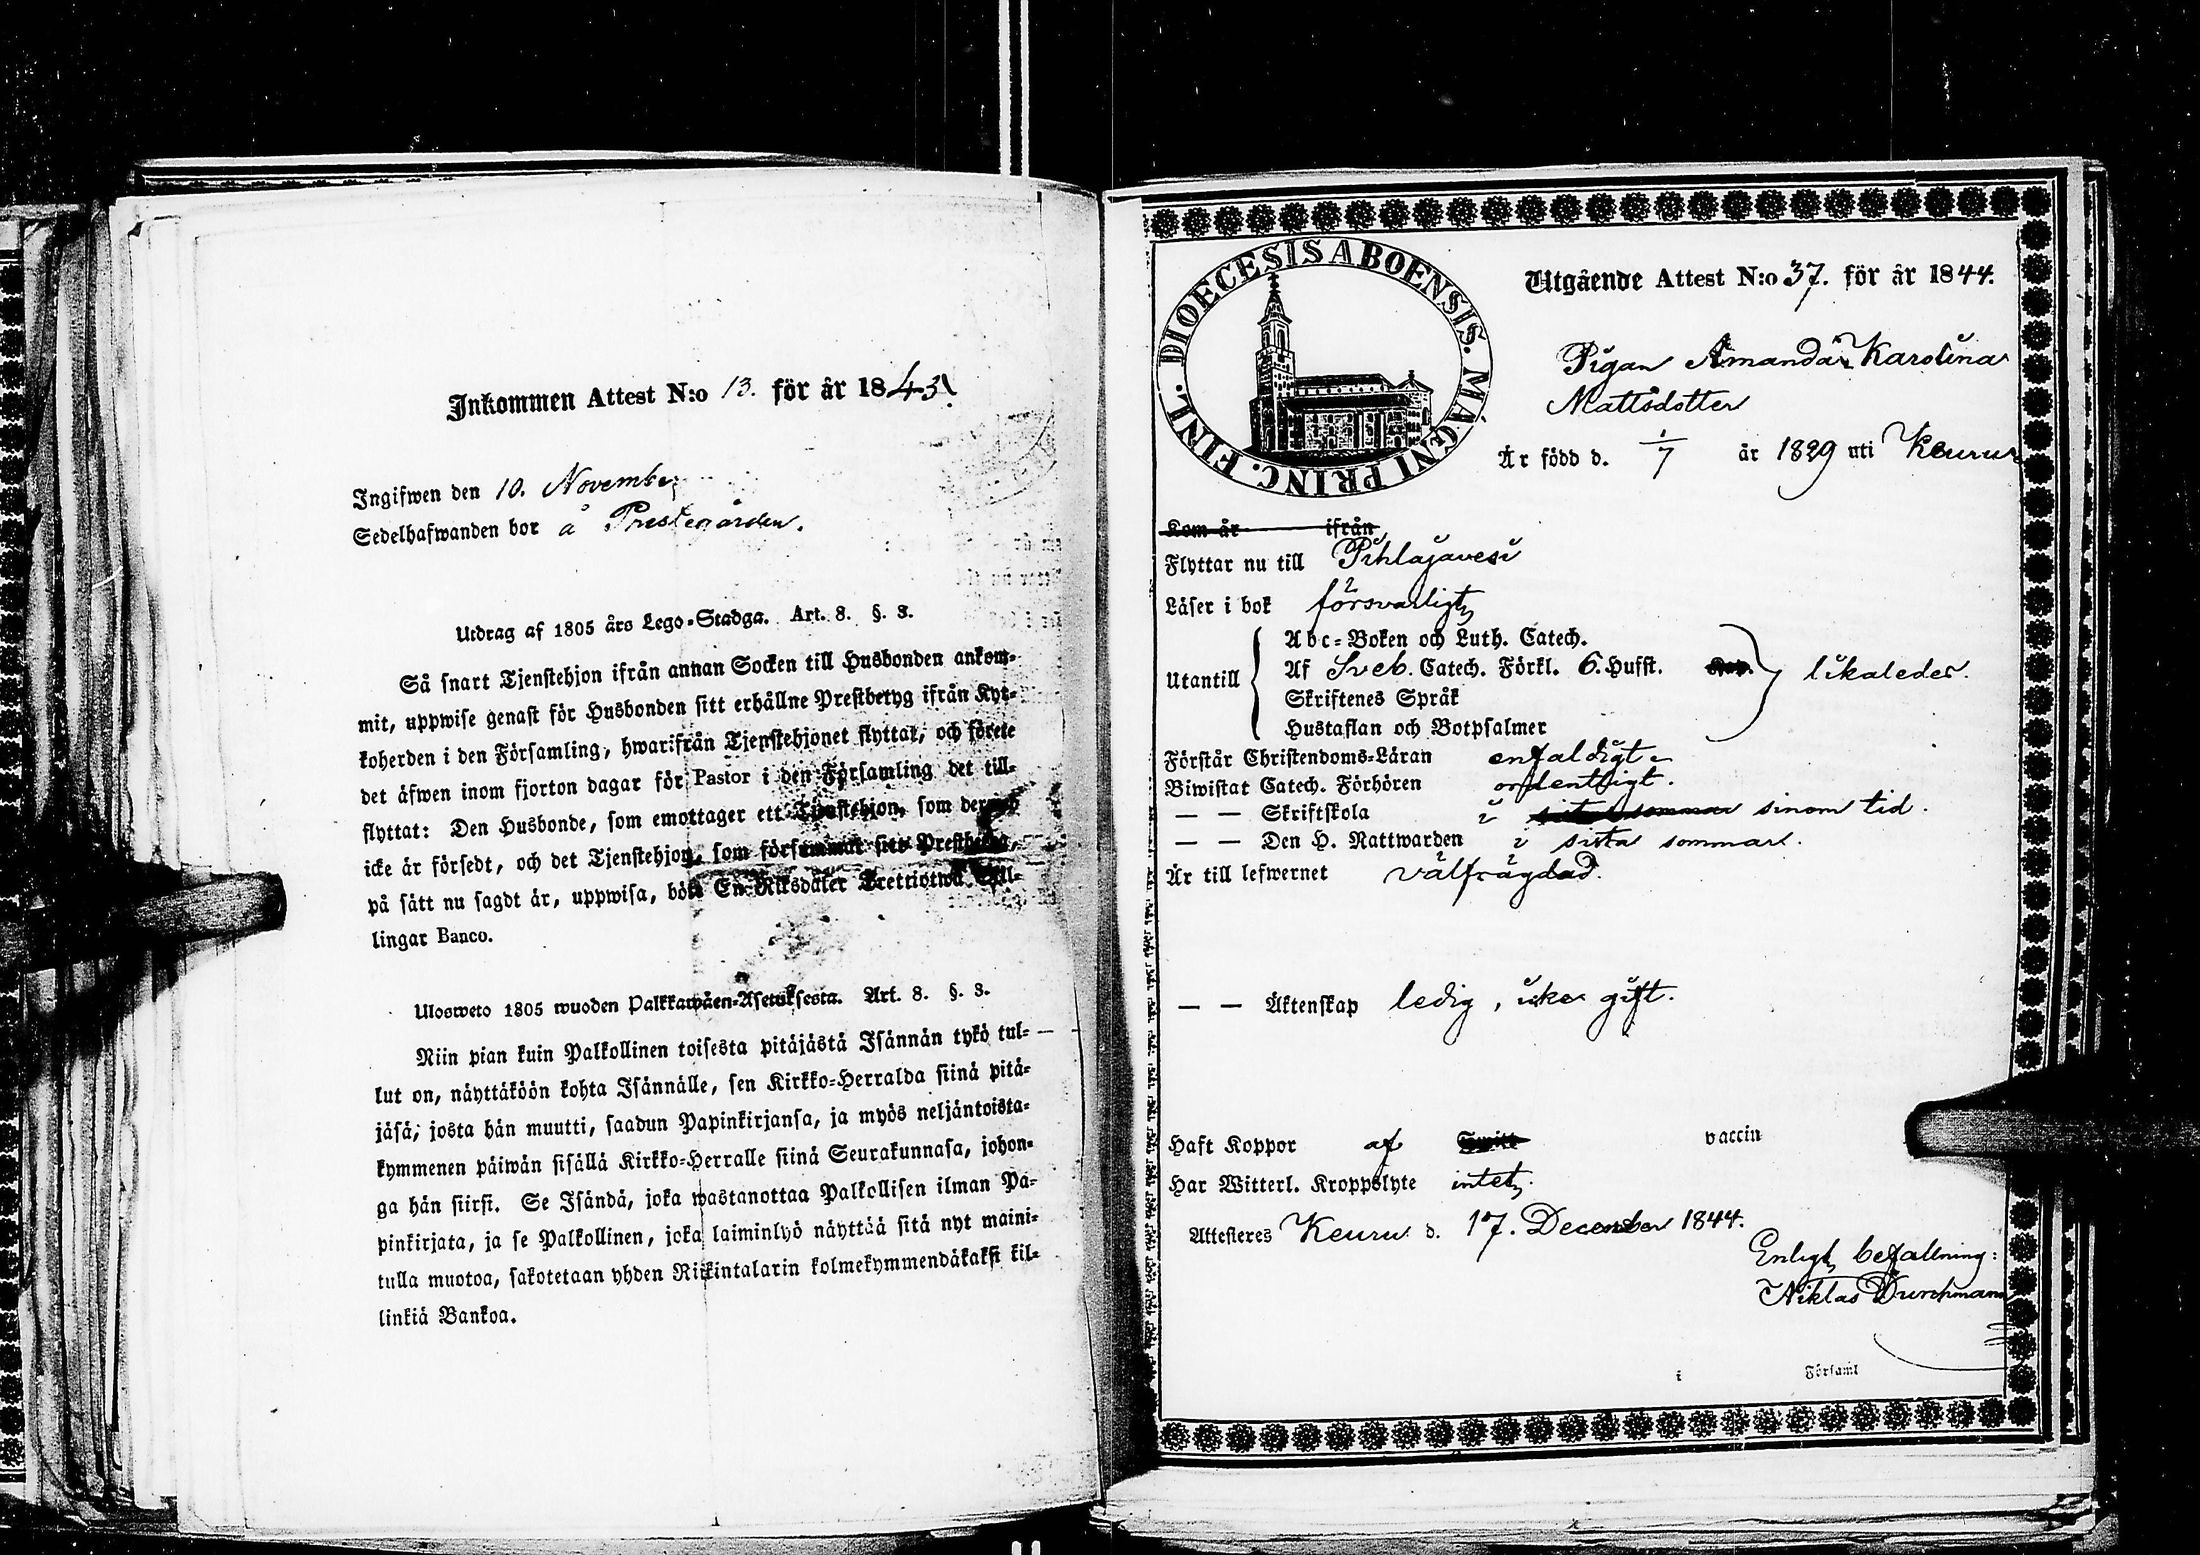 Inkommen Attest N:o 13. för år 1843.
Ingifwen den 10. November
Sedelhafwanden bor å Prestegården.
Utdrag af 1805 års Lego-Stadga. Art. 8. §. 3.
Så snart Tjenstehjon ifrån annan Socken till Husbonden ankom-
mit, uppwise genast för Husbonden sitt erhållne Prestbetyg ifrån Kyr-
koherden i den Församling, hwarifrån Tjenstehjonet flyttat, och förete
det äfwen inom fjorton dagar för Pastor i den Församling det till-
flyttat: Den Husbonde, som emottager ett Tjenstehjon, som dermed
icke är försedt, och det Tjenstehjon, som försummar sitt Prestbetyg,
på sätt nu sagdt är, uppwisa, böte En Riksdaler Trettiotwå Skil-
lingar Banco.
Ulosweto 1805 wuoden Palkkawäen-Asetuksesta. Art. 8. §. 3.
Niin pian kuin Palkollinen toisesta pitäjästä Isännän tykö tul-
lut on, näyttäköön kohta Isännälle, sen Kirkko-Herralda siinä pitä-
jäsä, josta hän muutti, saadun Papinkirjansa, ja myös neljäntoista-
kymmenen päiwän sisällä Kirkko-Herralle siinä Seurakunnasa, johon-
ga hän siirsi. Se Isändä, joka wastanottaa Palkollisen ilman Pa-
pinkirjata, ja se Palkollinen, joka laiminlyö näyttää sitä nyt maini-
tulla muotoa, sakotetaan yhden Riikintalarin kolmekymmendäkaksi kil-
linkiä Bankoa.
DIOECESIS ABOENSIS. MAGNI PRINC. FINL.
Utgående Attest N:o 37. för år 1844.
Pigan Amanda Karolina
Mattsdotter
Är född d. 1/7 år 1829 uti Keuru
Kom år ifrån
Flyttar nu till Pihlajavesi
Läser i bok försvarligt,
Abc-Boken och Luth. Catech.
Utantill Af Sveb. Catech. Förkl. 6. Hufst. likaledes.
Skriftenes Språk
Hustaflan och Botpsalmer
Förstår Christendoms-Läran enfaldigt
Biwistat Catech. Förhören ordentligt.
— — Skriftskola i sista sommar sinom tid.
— — Den H. Nattwarden i sista sommar.
Är till lefwernet välfrägdad.
— — Äktenskap ledig, icke gift.
Haft Koppor af vaccin
Har Witterl. Kroppslyte intet.
Attesteres Keuru d. 17. December 1844.
Enligt befallning:
Niklas Durchman
i Församl